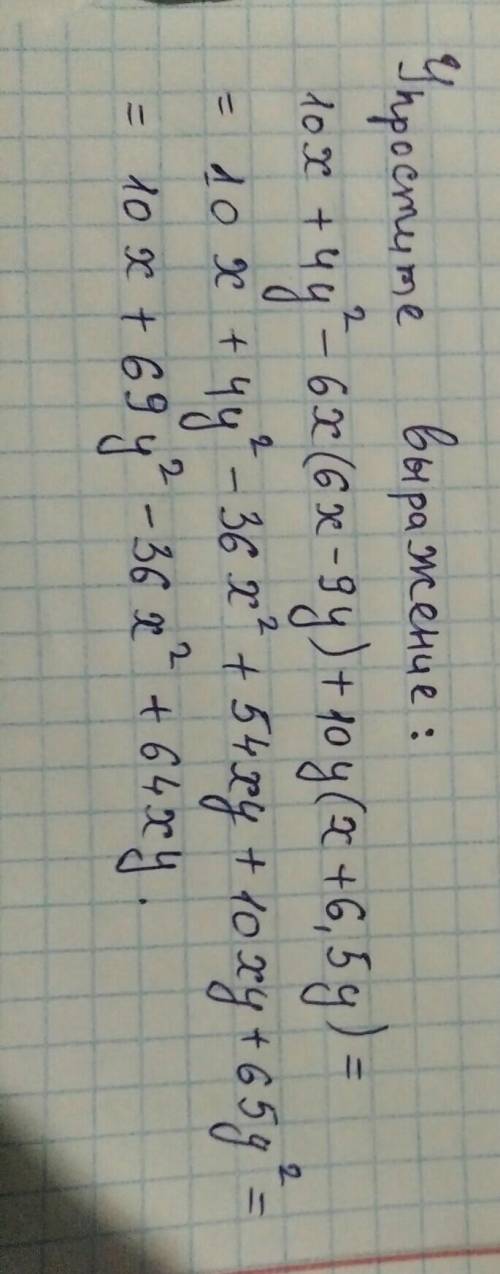 Упростите выражение:
10x + 4y² - 6x(6x - 9y) + 10y(x + 6,5y) =
= 10x + 4y² - 36x² + 54xy + 10xy + 65y² =
= 10x + 69y² - 36x² + 64xy.